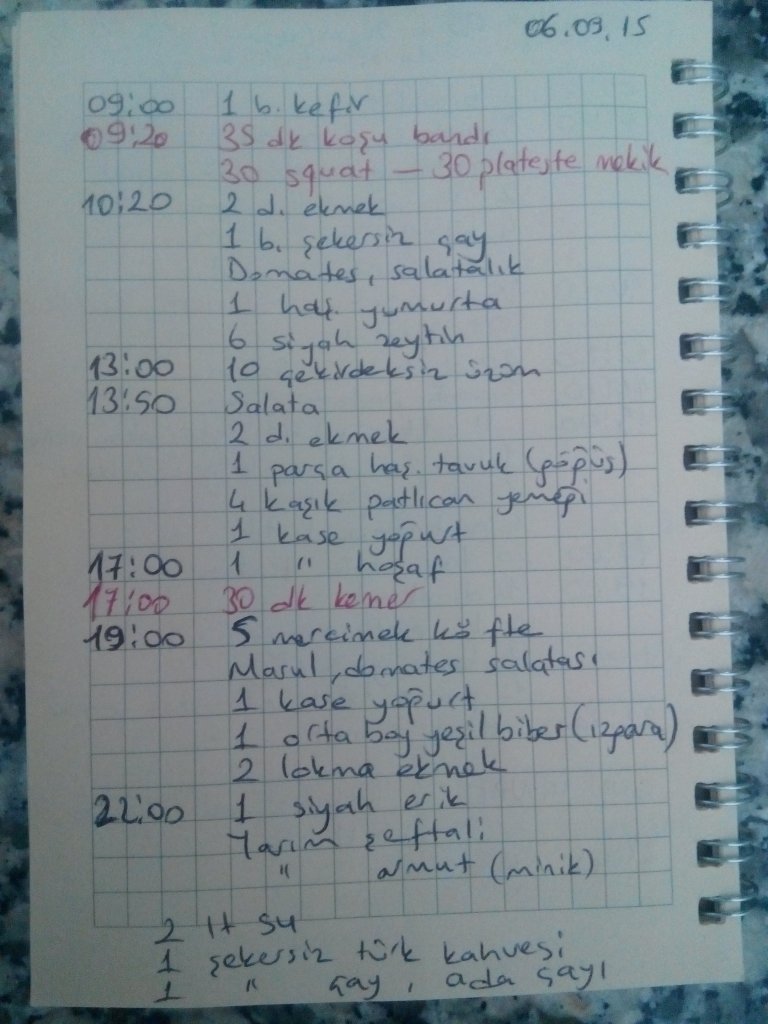 06.09.15
09:00 1 b. kefir
09:20 35 dk koşu bandı
30 squat – 30 plateşte mekik
10:20 2 d. ekmek
1 b. şekersiz çay
Domates, salatalık
1 haş. yumurta
6 siyah zeytin
13:00 10 çekirdeksiz üzüm
13:50 Salata
2 d. ekmek
1 parça haş. tavuk (göğüs)
4 kaşık patlıcan yemeği
1 kase yoğurt
17:00 1 " hoşaf
17:00 30 dk kemer
19:00 5 mercimek köfte
Marul, domates salatası
1 kase yoğurt
1 orta boy yeşil biber (ızgara)
2 lokma ekmek
22:00 1 siyah erik
Yarım şeftali
" armut (minik)
2 lt su
1 şekersiz türk kahvesi
1 " çay, ada çayı